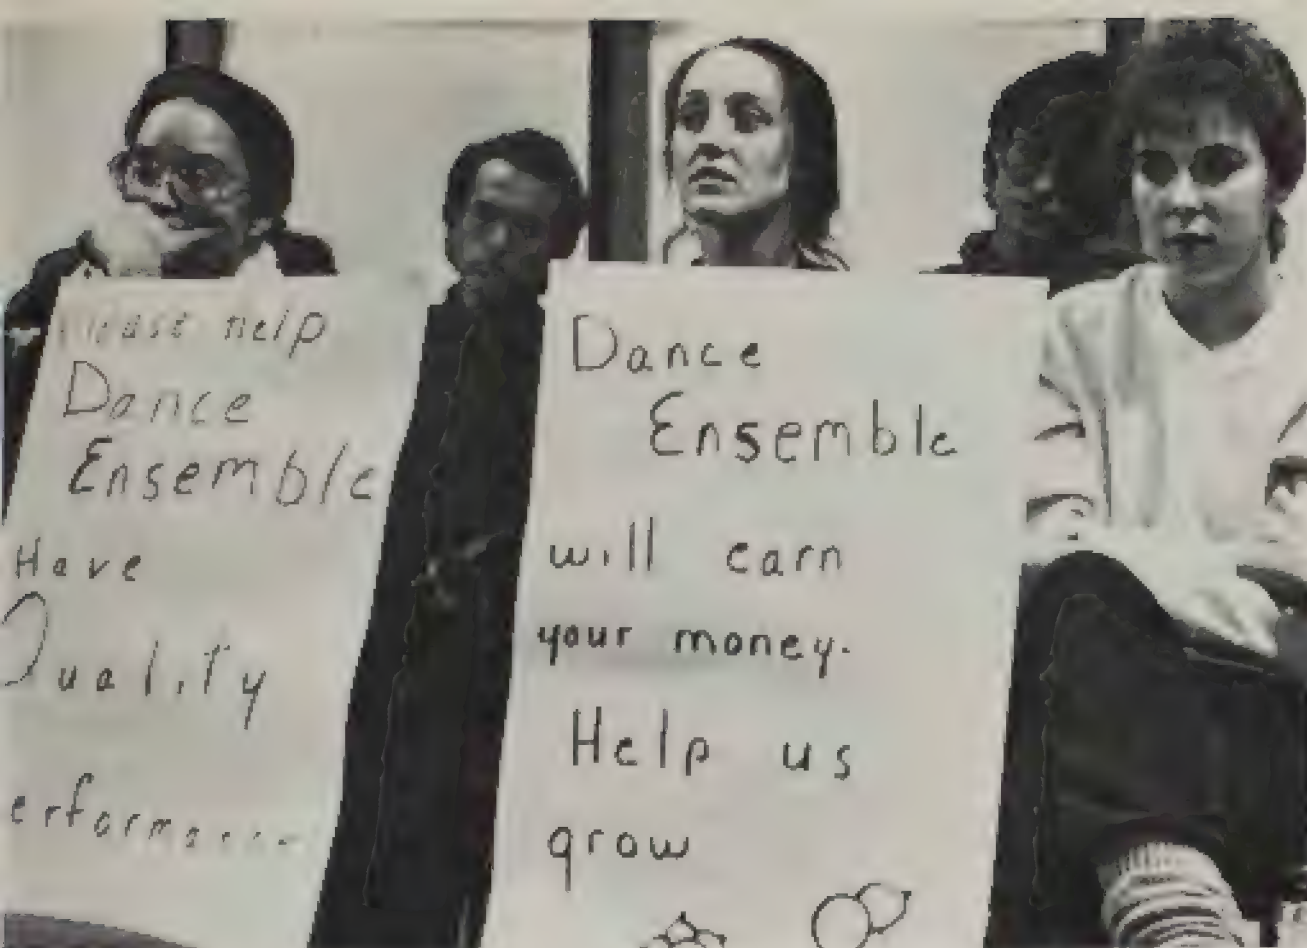 Please help
Dance
Ensemble
Have
Quality
erforma
Dance
Ensemble
will earn
your money.
Help us
grow